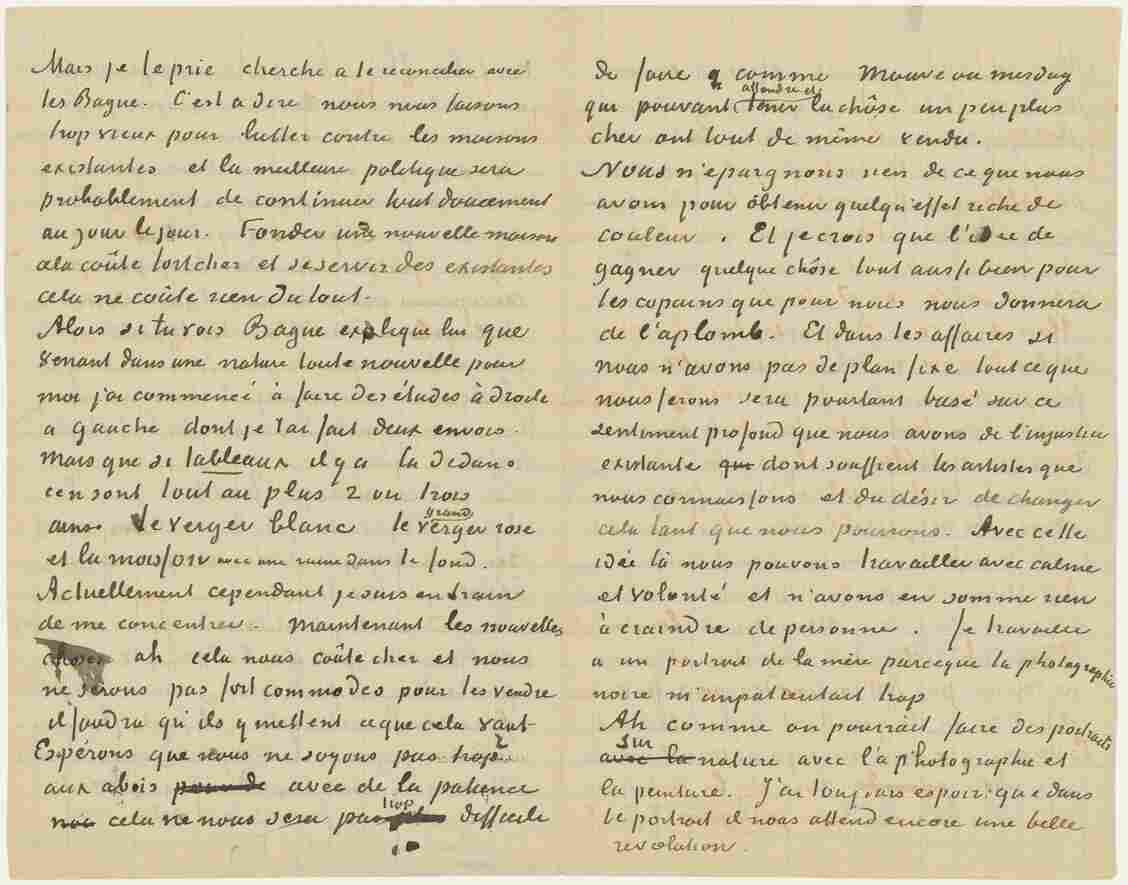 Mais je te prie cherche a te reconcilier avec
les Bague. C'est a dire nous nous faisons
trop vieux pour lutter contre les maisons
existantes et la meilleure politique sera
probablement de continuer tout doucement
au jour le jour. Fonder une nouvelle maison
ala coûte fort cher et se servir des existantes
cela ne coûte rien du tout.
Alors si tu vois Bague explique lui que
venant dans une nature toute nouvelle pour
moi j'ai commencé à faire des études à droite
a gauche dont je t'ai fait deux envois.
Mais que si tableaux il y a la dedans
c'en sont tout au plus 2 ou trois
ainsi le verger blanc le grand verger rose
et la moisson avec une ruine dans le fond.
Actuellement cependant je suis en train
de me concentrer. Maintenant les nouvelles
choses ah cela nous coûte cher et nous
ne serons pas fort commodes pour les vendre
il faudra qu'ils y mettent ce que cela vaut
Espérons que nous ne soyons pas trop
aux abois pour de avec de la patience
cela ne nous sera pas plus trop difficile
de faire comme Mauve ou mesdag
qui pouvant attendre et tenir la chôse un peu plus
cher ont tout de même vendu.
Nous n'épargnons rien de ce que nous
avons pour obtenir quelqu'effet riche de
couleur. Et je crois que l'idee de
gagner quelque chôse tout aussi bien pour
les copains que pour nous nous donnera
de l'aplomb. Et dans les affaires si
nous n'avons pas de plan fixe tout ce que
nous ferons sera pourtant basé sur ce
sentiment profond que nous avons de l'injustice
existante que dont souffrent les artistes que
nous connaissons et du désir de changer
cela tant que nous pourrons. Avec cette
idée là nous pouvons travailler avec calme
et volonté et n'avons en somme rien
à craindre de personne. Je travaille
a un portrait de la mère parceque la photographie
noire m'impatientait trop
Ah comme on pourrait faire des portraits
avec la sur nature avec la photographie et
la peinture. J'ai toujours espoir que dans
le portrait il nous attend encore une belle
revolution.